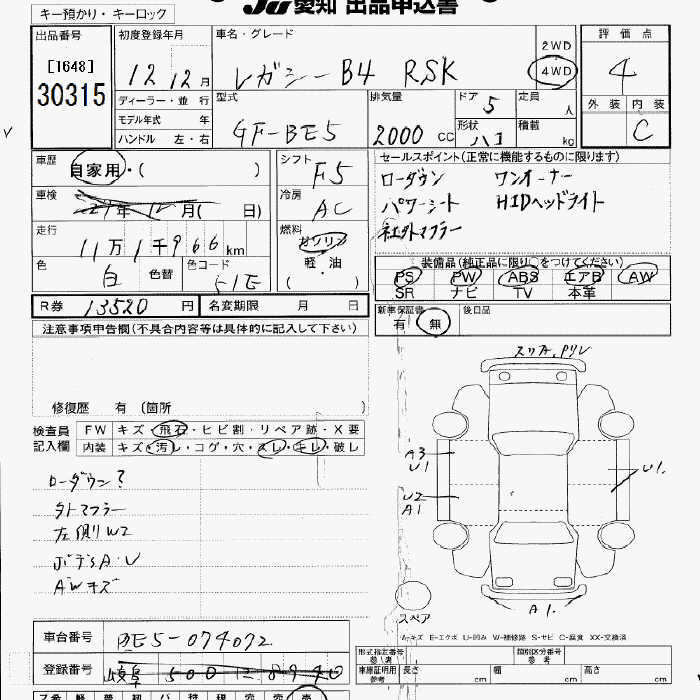 JU 愛知 出品申込書
キー預かり・キーロック
出品番号
[1648]
30315
初度登録年月
12 12月
ディーラー・並行
モデル年式 年
ハンドル 左・右
車名・グレード
レガシーB4 RSK
2WD
4WD
型式
GF-BE5
排気量
2000 CC
ドア 5
定員 人
形状 ハコ
積載 kg
評価点
4
外装 内装
C
車歴
自家用・( )
車検
年12月( 日)
走行
11万1千966km
色 白 色替 色コード 51E
シフト
F5
冷房
AC
燃料
ガソリン
軽・油
( )
セールスポイント(正常に機能するものに限ります)
ローダウン ワンオーナー
パワーシート HIDヘッドライト
社外マフラー
装備品(純正品に限り○をつけてください)
PS PW ABS エアB AW
SR ナビ TV 本革
新車保証書 後日品
有 無
R券 13520 円 名変期限 月 日
注意事項申告欄(不具合内容等は具体的に記入して下さい)
修復歴 有 (箇所 )
検査員
記入欄
FW キズ・飛石・ヒビ割・リペア跡・X要
内装 キズ・汚れ・コゲ・穴・スレ・キレ・破し
ローダウン?
外マフラー
左側リW2
ボデSA・U
AWキズ
スリA,Pリレ
A3
U1
U2
A1
U1.
A1.
スペア
A-キズ E-エクボ U-凹み W-補修跡 S-サビ C-腐食 XX-交換済
車台番号 BE5-074072
登録番号 岐阜 500 に 8940
形式指定番号
参考
類別区分番号
参考
車庫証明用
参考
長さ cm 幅 cm 高さ cm